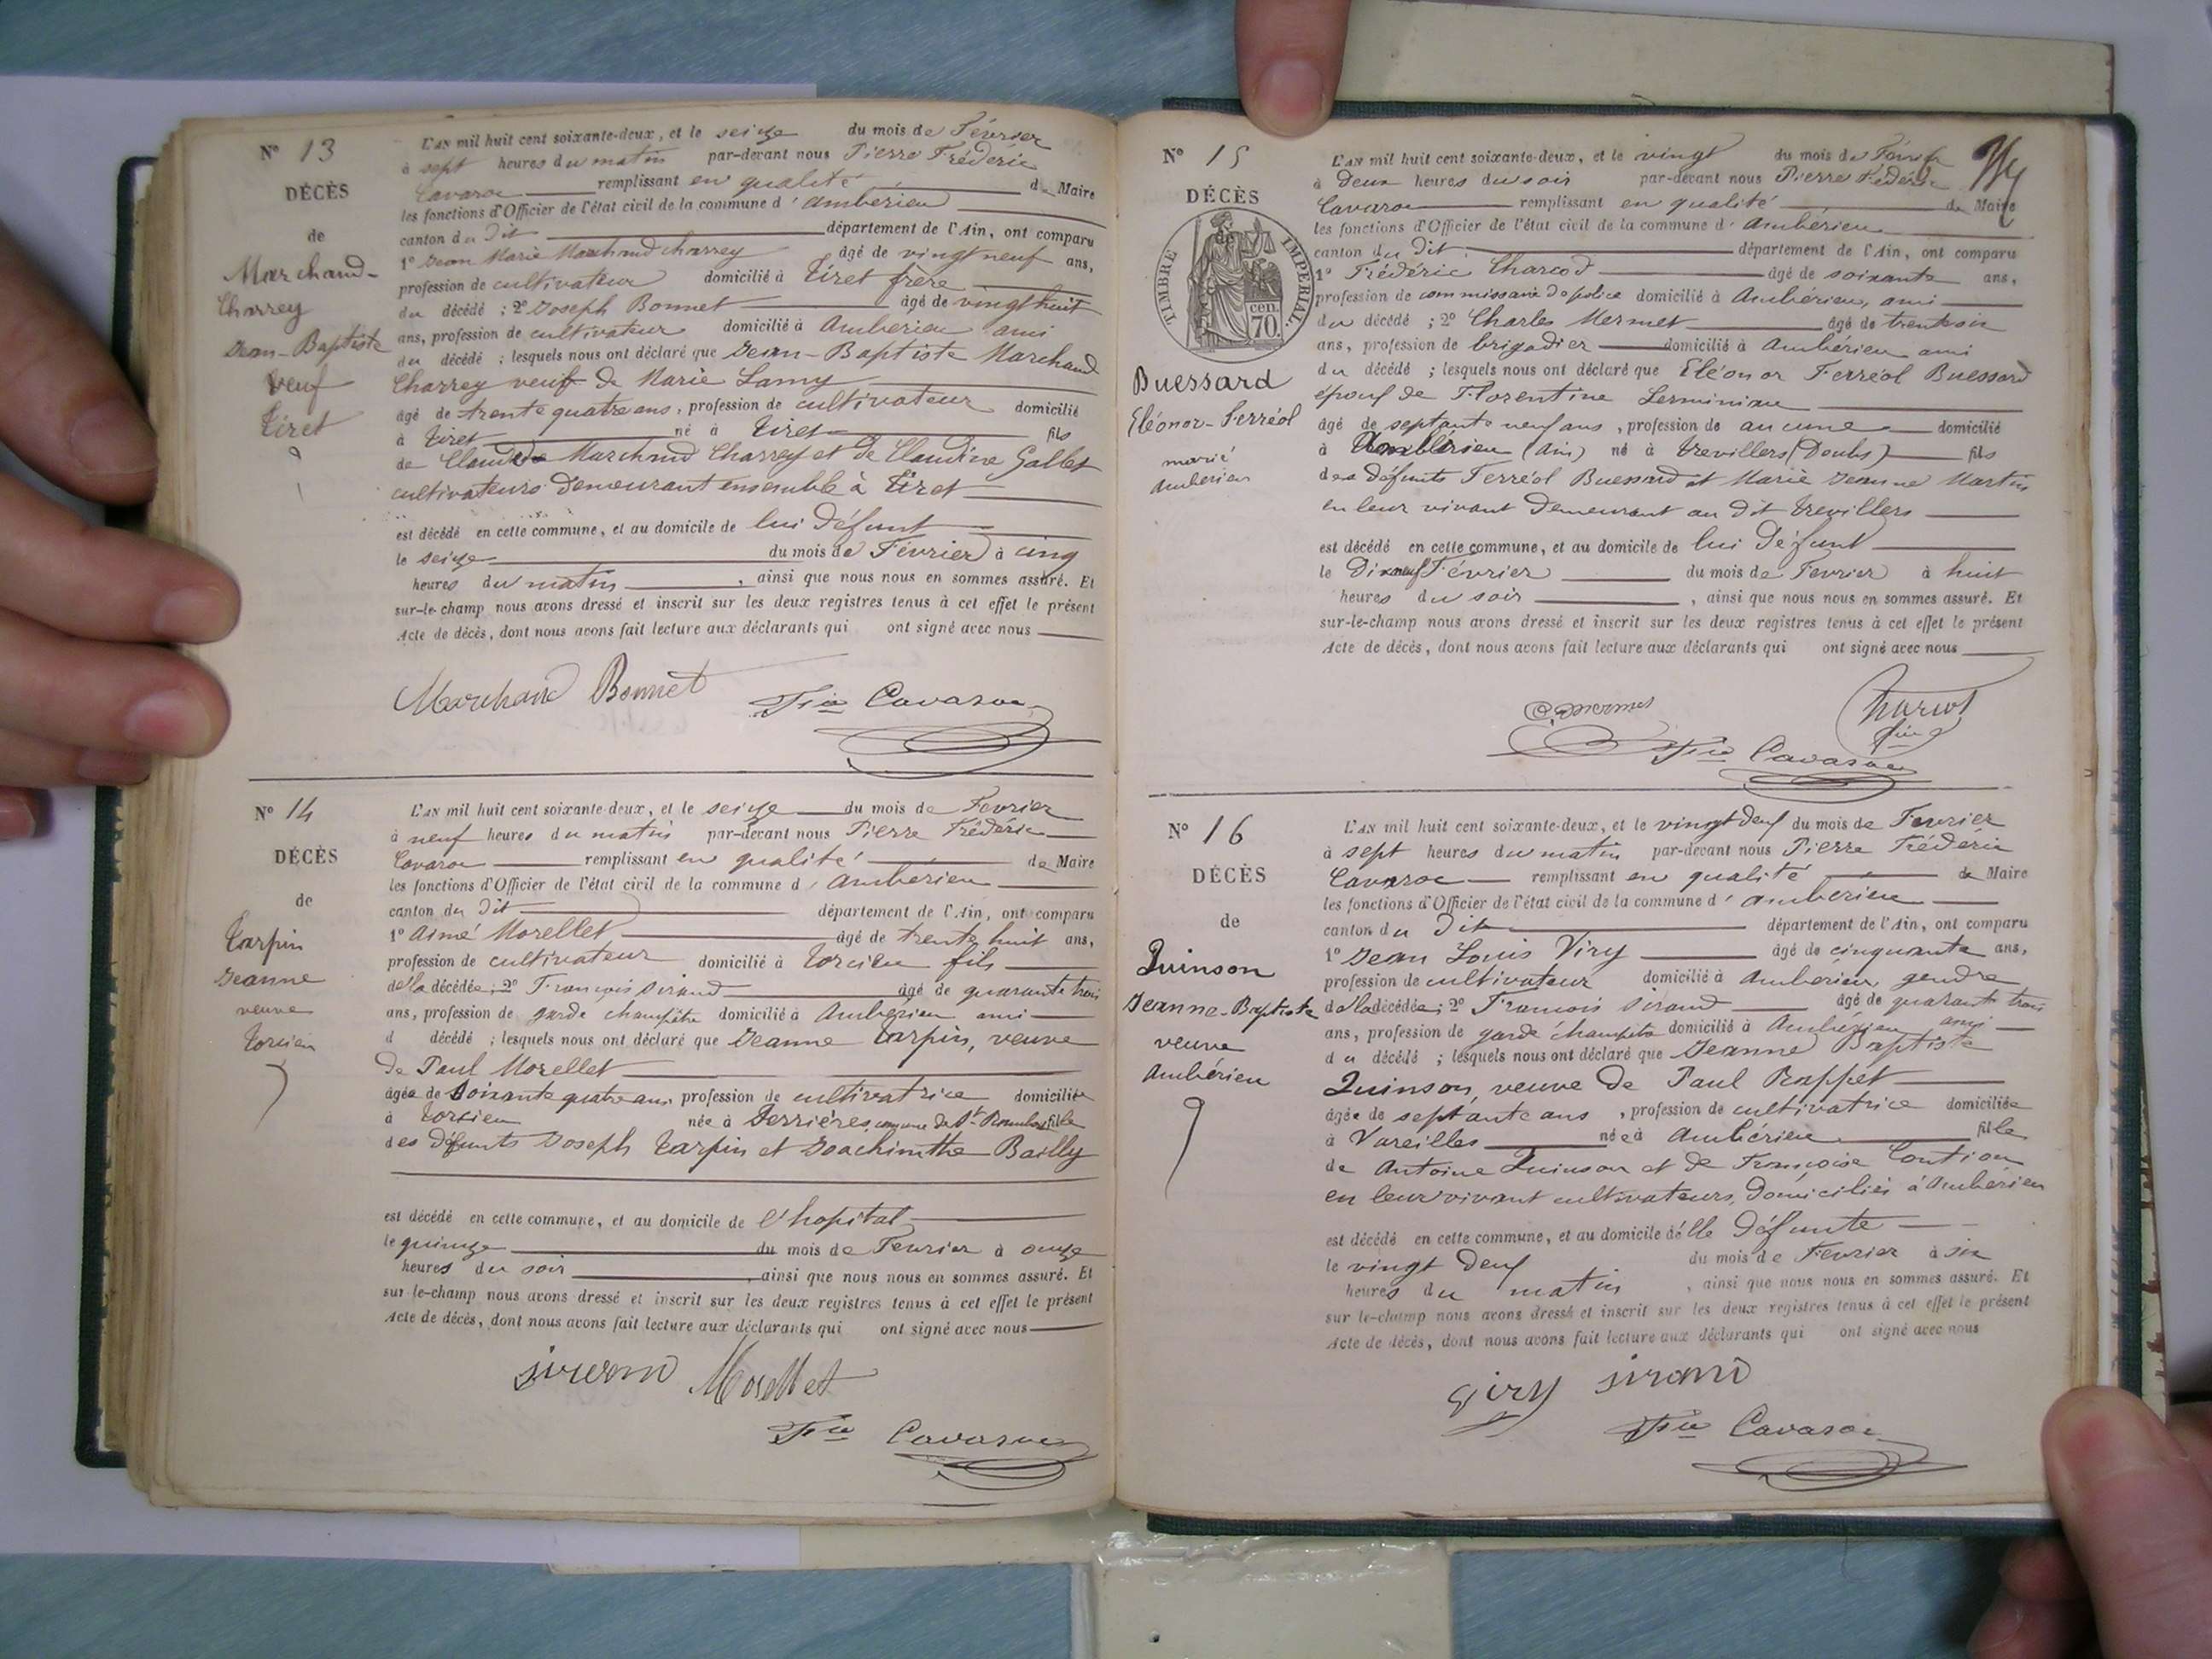 N° 13
DÉCÈS
de
Marchand-
Charrey
Jean-Baptiste
veuf
Tiret
L'AN mil huit cent soixante-deux, et le seize du mois de Février
à sept heures du matin par-devant nous Pierre Frédéric
Cavaroc remplissant en qualité de Maire
les fonctions d'Officier de l'état civil de la commune d'Ambérieu
canton du dit département de l'Ain, ont comparu
1° Jean Marie Marchand charrey âgé de vingt neuf ans,
profession de cultivateur domicilié à Tiret frère
du décédé ; 2° Joseph Bonnet âgé de vingt huit
ans, profession de cultivateur domicilié à Ambérieu ami
du décédé ; lesquels nous ont déclaré que Jean-Baptiste Marchand
Charrey veuf de Marie Lamy
âgé de trente quatre ans, profession de cultivateur domicilié
à Tiret né à Tiret fils
de Claude Marchand Charrey et de Claudine Gallet
cultivateurs demeurant ensemble à Tiret
est décédé en cette commune, et au domicile de lui défunt
le seize du mois de Février à cinq
heures du matin, ainsi que nous nous en sommes assuré. Et
sur-le-champ nous avons dressé et inscrit sur les deux registres tenus à cet effet le présent
Acte de décès, dont nous avons fait lecture aux déclarants qui ont signé avec nous
Marchand Bonnet Fic Cavaroc
N° 14
DÉCÈS
de
Tarpin
Jeanne
veuve
Torcieu
L'AN mil huit cent soixante-deux, et le seize du mois de Fevrier
à neuf heures du matin par-devant nous Pierre Frédéric
Cavaroc remplissant en qualité de Maire
les fonctions d'Officier de l'état civil de la commune d'Ambérieu
canton du dit département de l'Ain, ont comparu
1° Aimé Morellet âgé de trente huit ans,
profession de cultivateur domicilié à Torcieu fils
de la décédée; 2° François Sirand âgé de quarante trois
ans, profession de garde champêtre domicilié à Ambérieu ami
d décédé ; lesquels nous ont déclaré que Jeanne Tarpin, veuve
de Paul Morellet
âgée de Soixante quatre ans profession de cultivatrice domiciliée
à Torcieu née à Serrières, commune de St Rambert fille
des défunts Joseph Tarpin et Joachimthe Bailly
est décédé en cette commune, et au domicile de l'hopital
le quinze du mois de Fevrier à onze
heures du soir, ainsi que nous nous en sommes assuré. Et
sur-le-champ nous avons dressé et inscrit sur les deux registres tenus à cet effet le présent
Acte de décès, dont nous avons fait lecture aux déclarants qui ont signé avec nous
Sirand Morellet
Fic Cavaroc
N° 15
DÉCÈS
TIMBRE IMPERIAL.
70. cen
Buessard
Eléonor-Ferréol
marié
Ambérieu
L'AN mil huit cent soixante-deux, et le vingt du mois de Février
à deux heures du soir par-devant nous Pierre Frédéric
Cavaroc remplissant en qualité de Maire
les fonctions d'Officier de l'état civil de la commune d'Ambérieu
canton du dit département de l'Ain, ont comparu
1° Frédéric Charcot âgé de soixante ans,
profession de commissaire de police domicilié à Ambérieu, ami
du décédé ; 2° Charles Mermet âgé de trente six
ans, profession de brigadier domicilié à Ambérieu ami
du décédé ; lesquels nous ont déclaré que Eléonor Ferréol Buessard
époux de Florentine
âgé de septante neuf ans, profession de aucune domicilié
à Ambérieu (Ain) né à Trevillers (Doubs) fils
des défunts Ferréol Buessard et Marie Jeanne Martin
en leur vivant demeurant au dit Trevillers
est décédé en cette commune, et au domicile de lui défunt
le dix neuf Février du mois de Fevrier à huit
heures du soir, ainsi que nous nous en sommes assuré. Et
sur-le-champ nous avons dressé et inscrit sur les deux registres tenus à cet effet le présent
Acte de décès, dont nous avons fait lecture aux déclarants qui ont signé avec nous
Charcot
Fic Cavaroc
N° 16
DÉCÈS
de
Quinson
Jeanne-Baptiste
veuve
Ambérieu
L'AN mil huit cent soixante-deux, et le vingt deux du mois de Fevrier
à sept heures du matin par-devant nous Pierre Frédéric
Cavaroc remplissant en qualité de Maire
les fonctions d'Officier de l'état civil de la commune d'Ambérieu
canton du Dit département de l'Ain, ont comparu
1° Jean Louis Viry âgé de cinquante ans,
profession de cultivateur domicilié à Ambérieu, gendre
de la décédée; 2° Francois Sirand âgé de quarante trois
ans, profession de garde champêtre domicilié à Ambérieu ami
du décédé ; lesquels nous ont déclaré que Jeanne Baptiste
Quinson, veuve de Paul Rappet
âgée de septante ans, profession de cultivatrice domiciliée
à Vareilles née à Ambérieu fille
de Antoine Quinson et de Françoise
en leur vivant cultivateurs, domiciliés à Ambérieu
est décédé en cette commune, et au domicile d'elle défunte
le vingt deux du mois de Fevrier à six
heures du matin, ainsi que nous nous en sommes assuré. Et
sur-le-champ nous avons dressé et inscrit sur les deux registres tenus à cet effet le présent
Acte de décès, dont nous avons fait lecture aux déclarants qui ont signé avec nous
Sirand
Fic Cavaroc